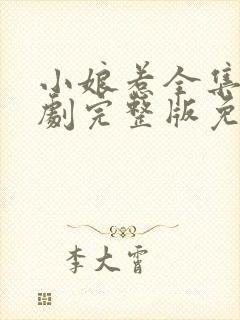 小娘惹全集
劇完整版免
李大霄